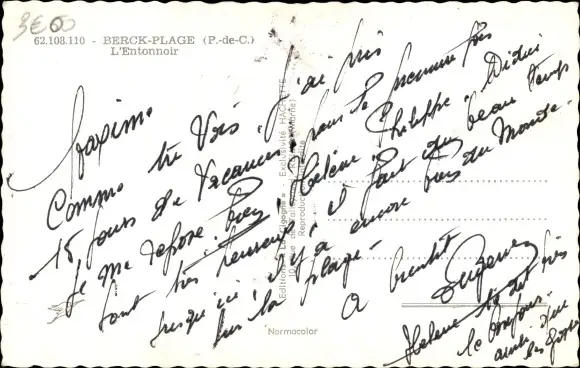 3€00
62.108.110 - BERCK-PLAGE (P.-de-C.)
L'Entonnoir
Maxime
Comme tu vois j'ai pris
15 jours de vacances pour la première fois
Je me repose bien. Hélène Philippe Didier
sont très heureux, il fait du beau temps
jusqu'ici il y a encore bien du Monde
sur la plage -
A bientôt
Hélène
le bonjour
ainsi que
Editions "La Cigogne" - Exclusivité HACHETTE
Reproduction interdite
Normacolor